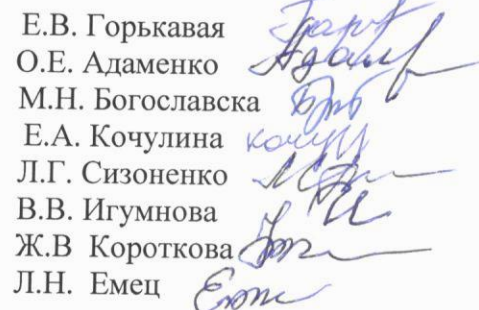 Е.В. Горькавая
О.Е. Адаменко
М.Н. Богославска
Е.А. Кочулина
Л.Г. Сизоненко
В.В. Игумнова
Ж.В Короткова
Л.Н. Емец